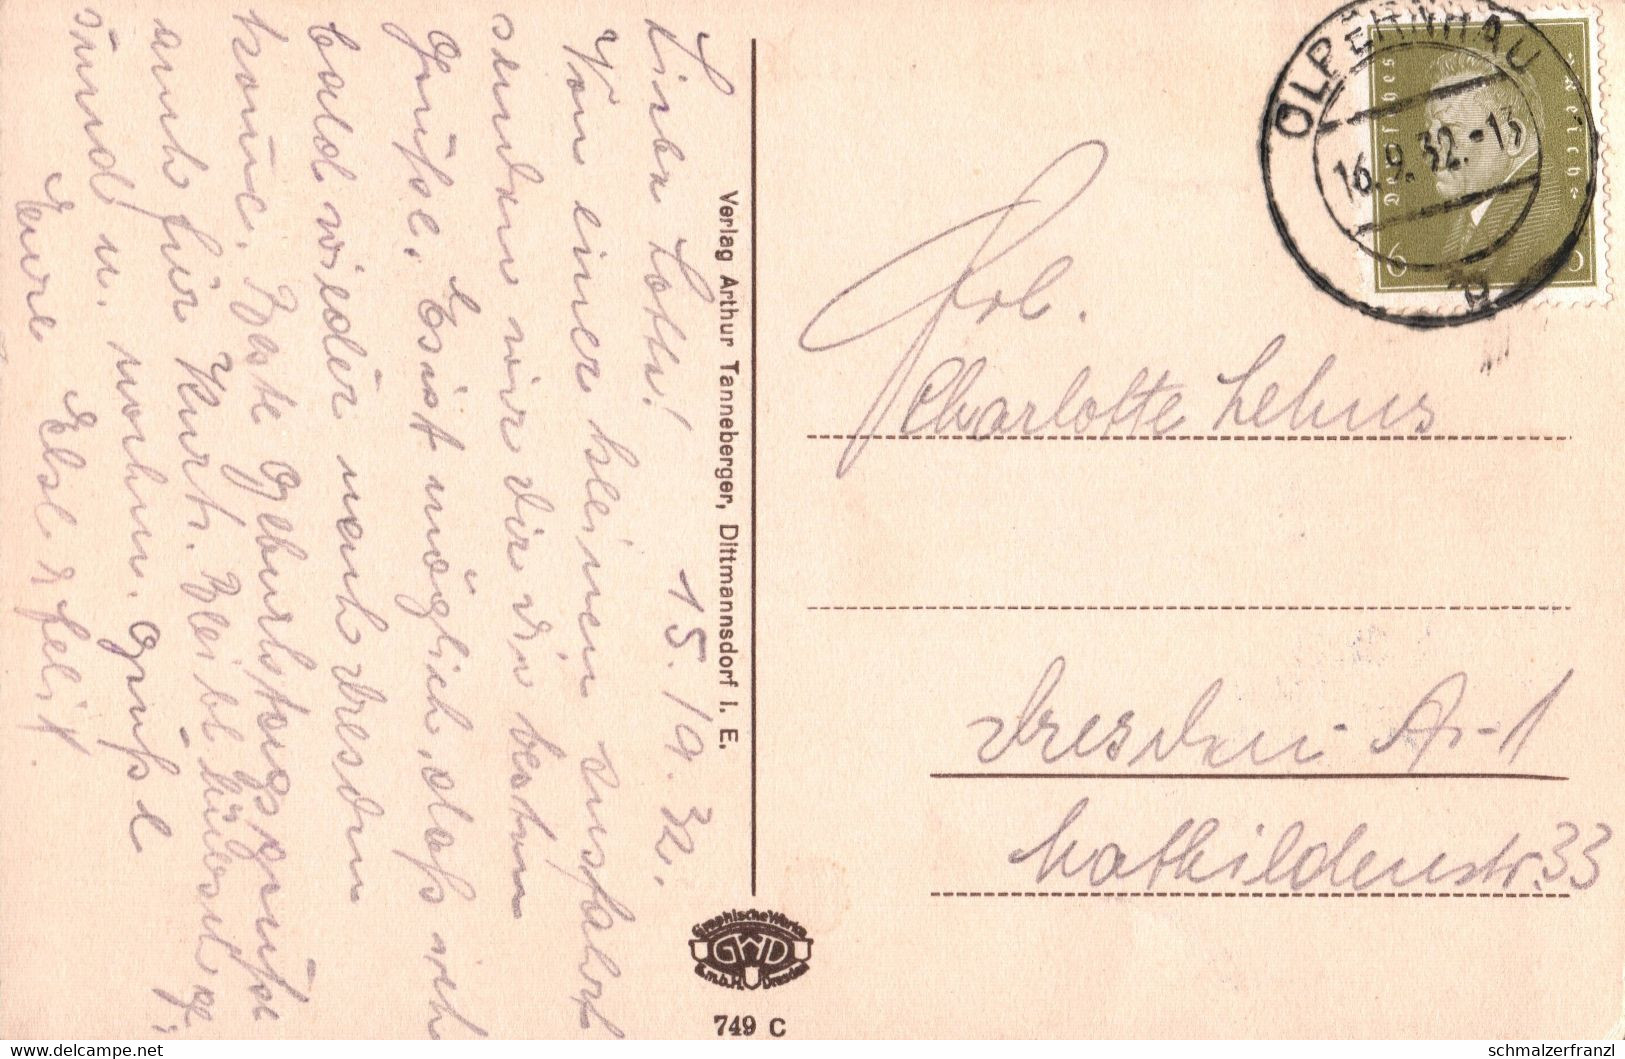 Liebe Lotte! 15./9.32.
Von einer kleinen Ausfahrt
senden wir dir die besten
Grüße. Es ist möglich, daß ich
bald wieder nach Dresden
komme. Beste Geburtstagsgrüße
auch für Kurt. Bleibt hübsch ge-
sund u. Grüße
Eure Else & Felix
Verlag Arthur Tanneberger, Dittmannsdorf i. E.
Graphische Werke
GWD
G.m.b.H. Dresden
749 C
OLBERNHAU
16.9.32.-13
b
Deutsches Reich
6 6
Frl.
Charlotte Lehus
Dresden A-1
Mathildenstr. 33
delcampe.net
schmalzerfranzl